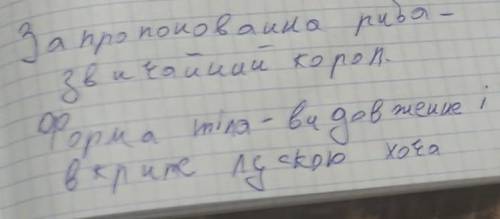 Запропонована риба -
звичайний короп.
Форма тіла - видовжене і
вкрите лускою хоча